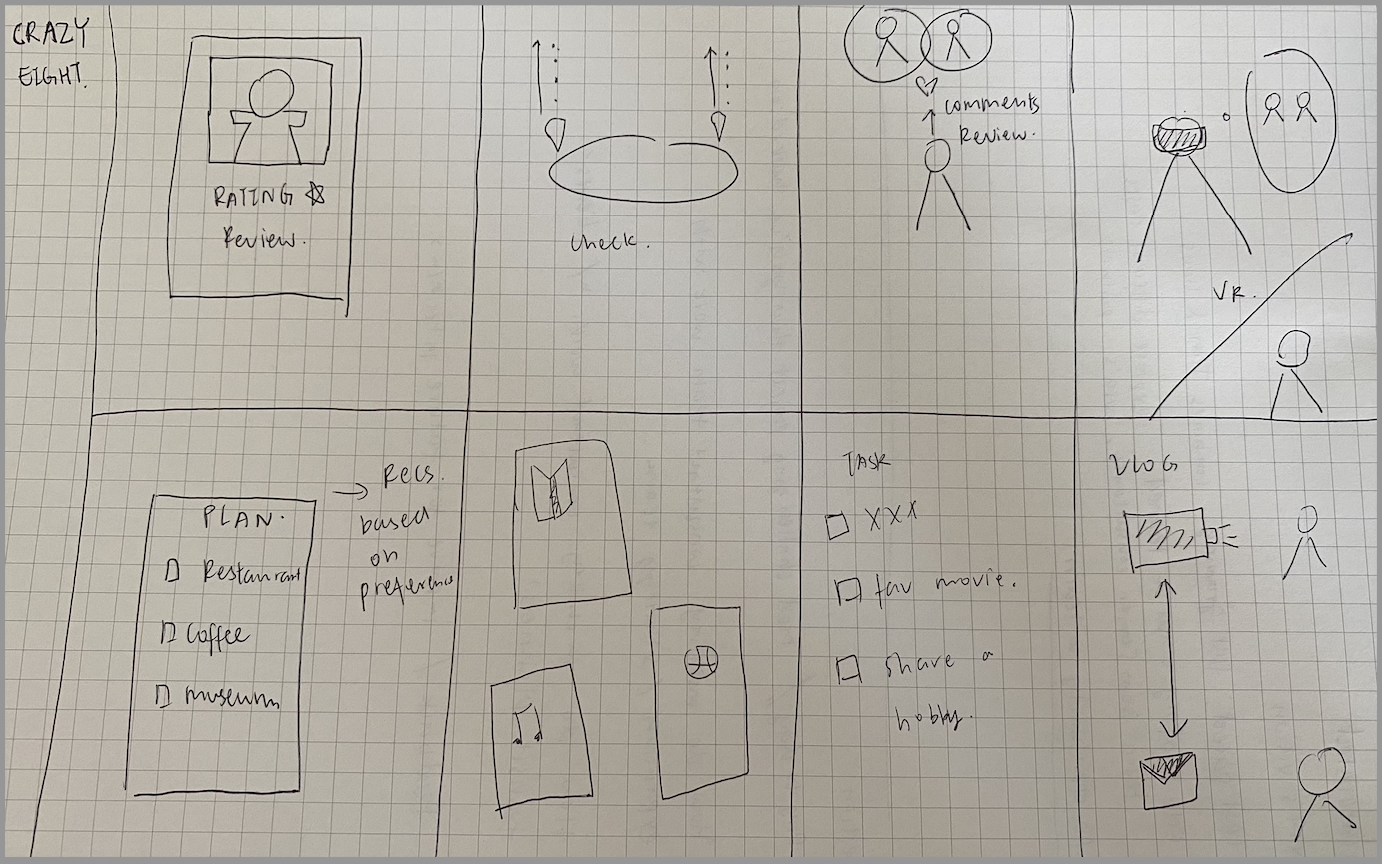 CRAZY
EIGHT.
RATING
Review.
Check.
comments
Review.
VR.
PLAN.
Restaurant
Coffee
museum
Recs.
based
on
preference
TASK
XXX
fav movie.
share a
hobby.
VLOG